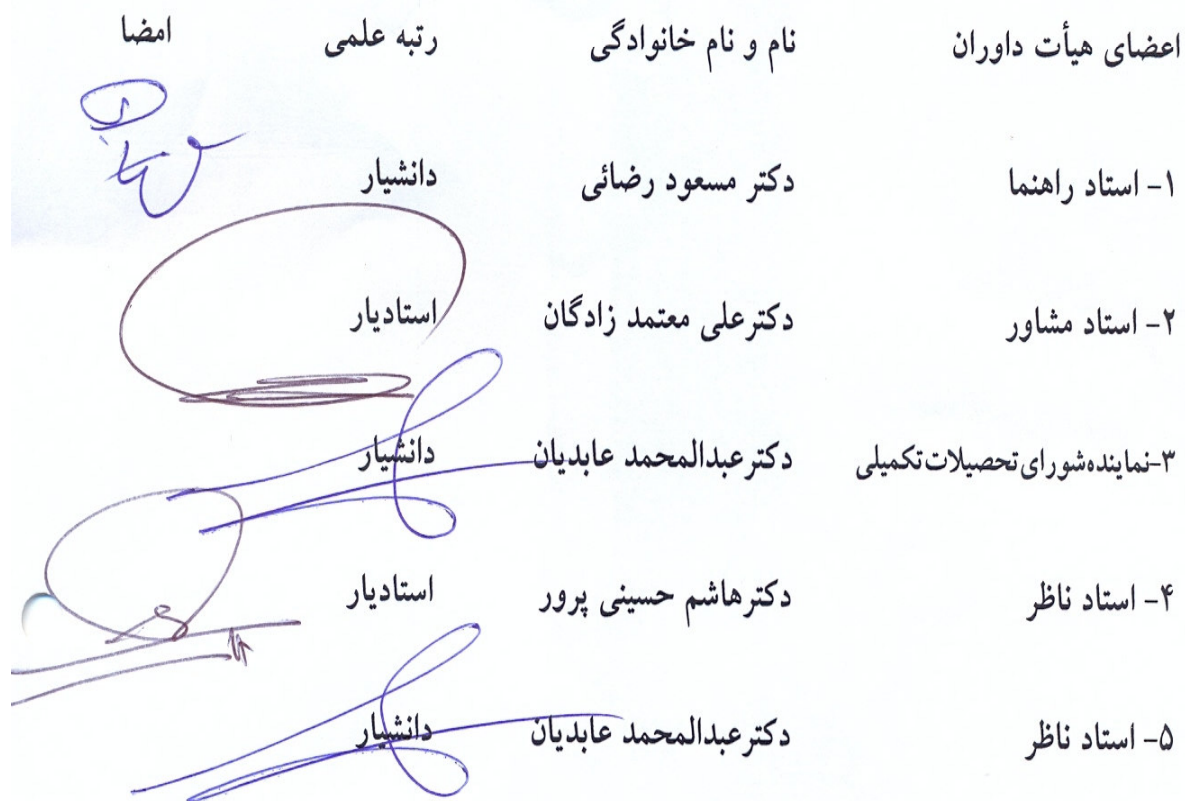 اعضای هیأت داوران نام و نام خانوادگی رتبه علمی امضا
۱- استاد راهنما دکتر مسعود رضائی دانشیار
۲- استاد مشاور دکترعلی معتمد زادگان استادیار
۳-نماینده‌شورای‌تحصیلات‌تکمیلی دکترعبدالمحمد عابدیان دانشیار
۴- استاد ناظر دکترهاشم حسینی پرور استادیار
۵- استاد ناظر دکترعبدالمحمد عابدیان دانشیار